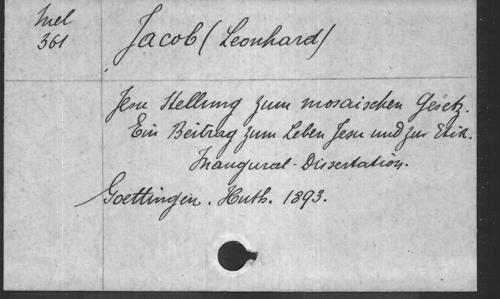 Mel
361
Jacob (Leonhard)
Jesu Stellung zum mosaischen Gesetz.
Ein Beitrag zum Leben Jesu und zur Etik.
Inaugural-Dissertation.
Goettingen. Huth. 1893.